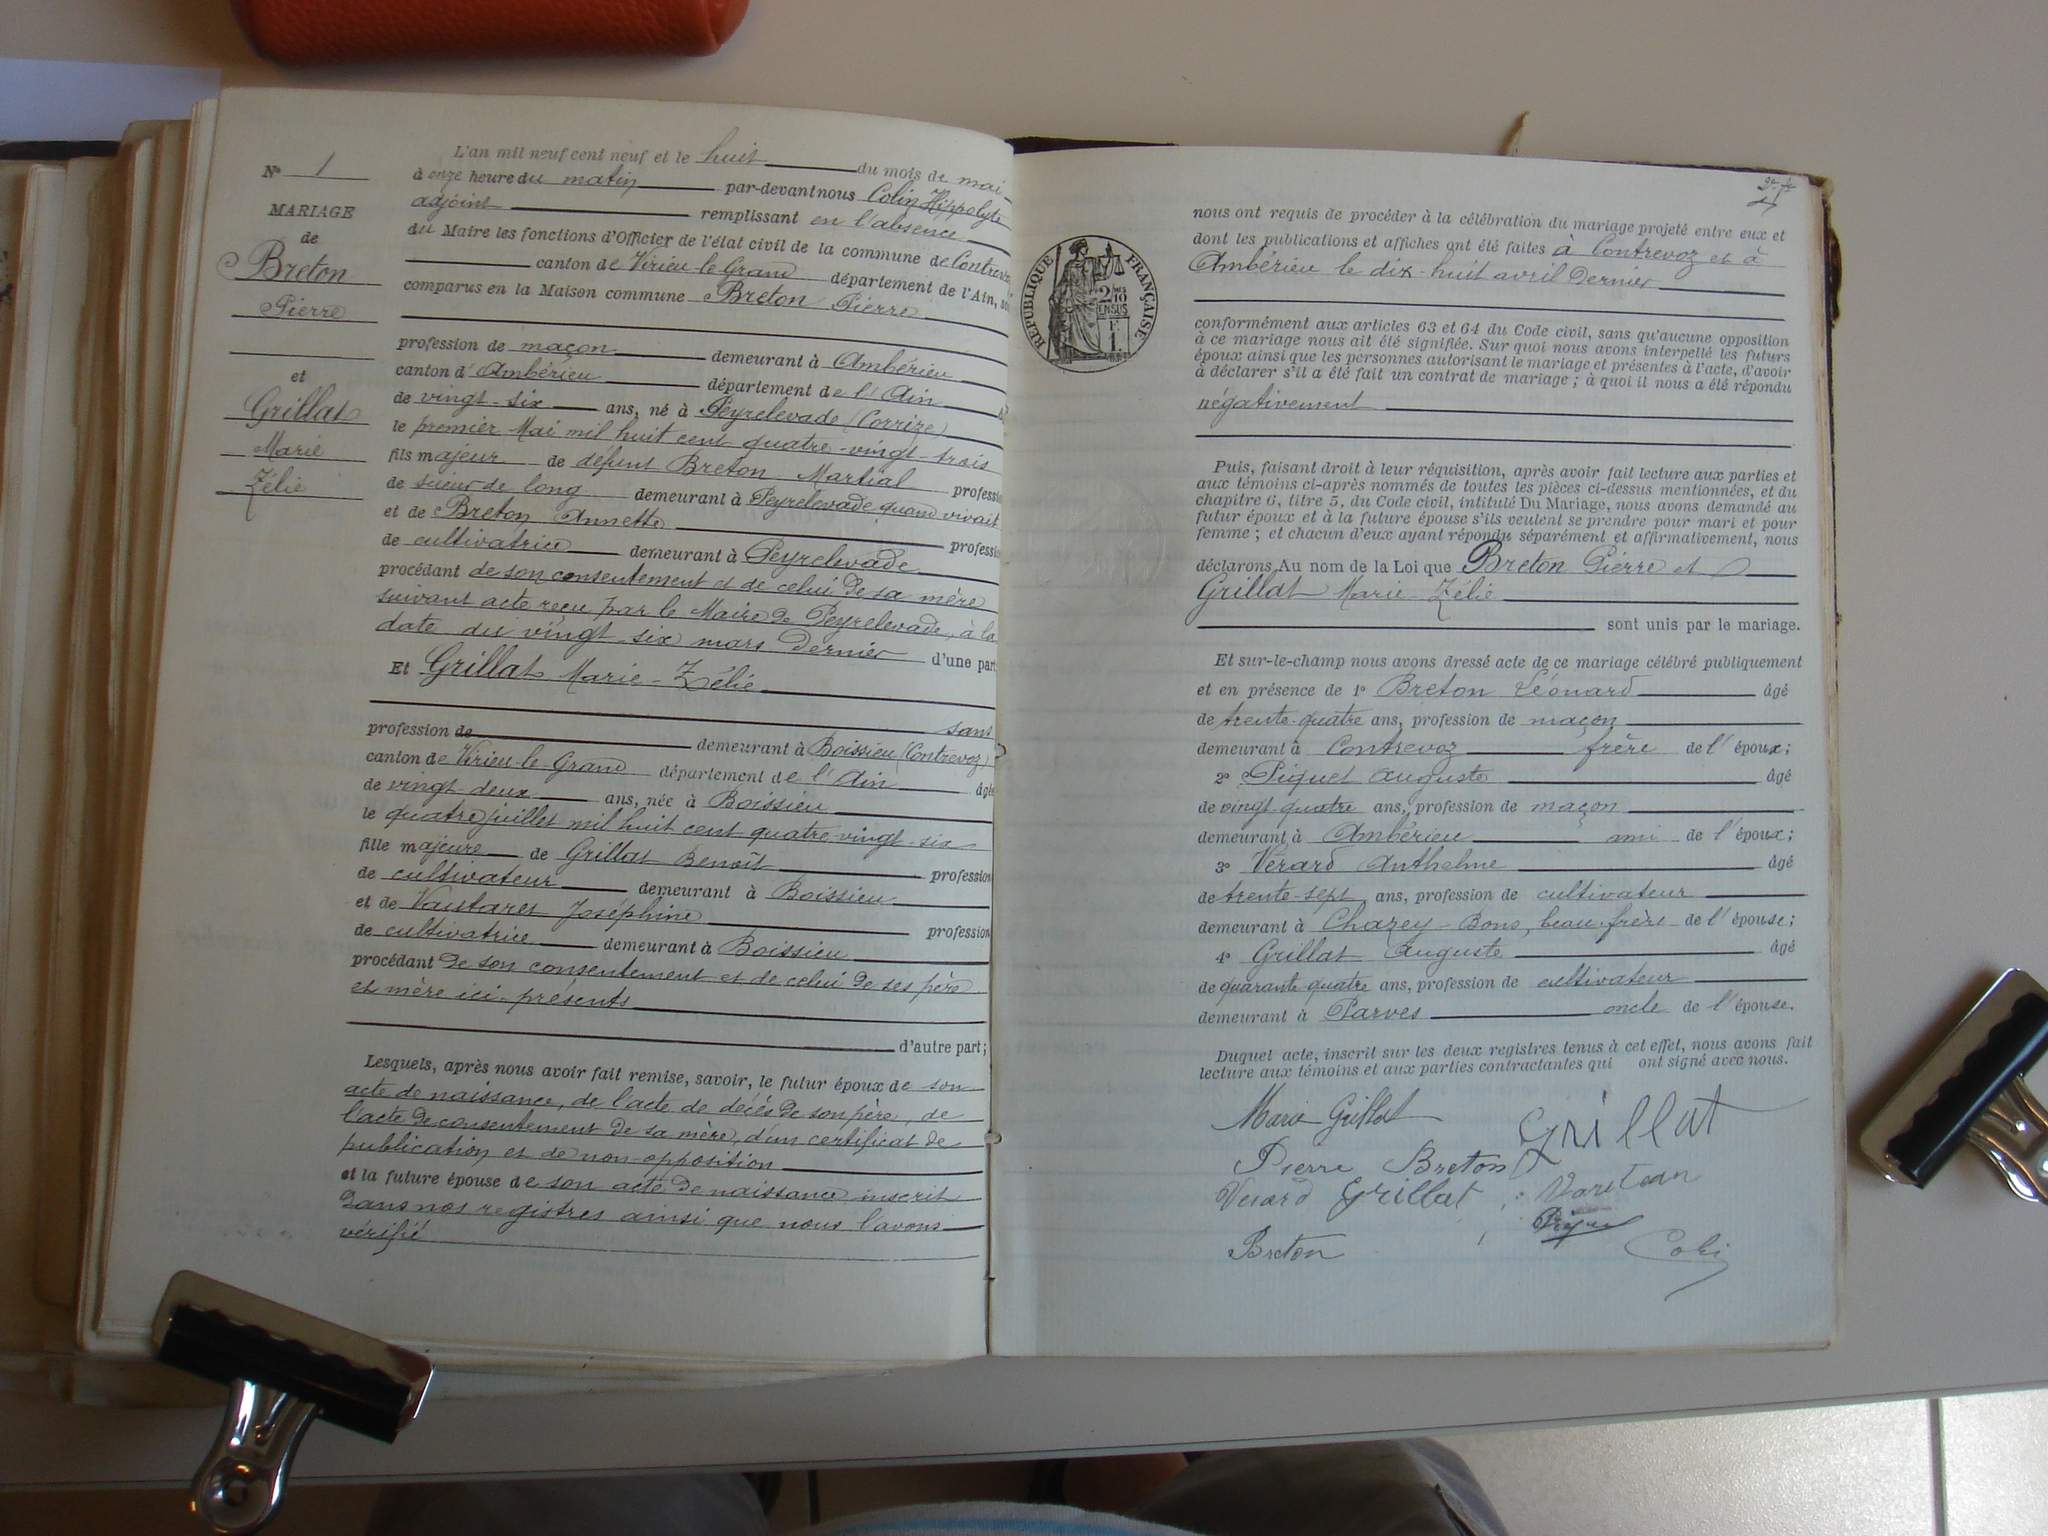 N° 1
MARIAGE
de
Breton
Pierre
et
Grillat
Marie
Zélie
L'an mil neuf cent neuf et le huit du mois de mai
à onze heure du matin par-devant nous Colin Hippolyte
adjoint remplissant en l'absence
du Maire les fonctions d'Officier de l'état civil de la commune de Contrevoz
canton de Virieu-le-Grand département de l'Ain, so
comparus en la Maison commune Breton Pierre
profession de maçon demeurant à Ambérieu
canton d'Ambérieu département de l'Ain
de vingt-six ans, né à Peyrelevade (Corrèze)
le premier Mai mil huit cent quatre-vingt-trois
fils majeur de défunt Breton Martial profession
de scieur de long demeurant à Peyrelevade quand vivait
et de Breton Annette profession
de cultivatrice demeurant à Peyrelevade
procédant de son consentement et de celui de sa mère
suivant acte reçu par le Maire de Peyrelevade, à la
date du vingt-six mars dernier d'une part
Et Grillat Marie-Zélie
sans
profession de demeurant à Boissieu (Contrevoz)
canton de Virieu-le-Grand département de l'Ain âgée
de vingt-deux ans, née à Boissieu
le quatre juillet mil huit cent quatre-vingt-six
fille majeure de Grillat Benoît profession
de cultivateur demeurant à Boissieu
et de Vautaret Joséphine profession
de cultivatrice demeurant à Boissieu
procédant de son consentement et de celui de ses père
et mère ici présents
d'autre part;
Lesquels, après nous avoir fait remise, savoir, le futur époux de son
acte de naissance, de l'acte de décès de son père, de
l'acte de consentement de sa mère, d'un certificat de
publication et de non-opposition
et la future épouse de son acte de naissance inscrit
dans nos registres ainsi que nous l'avons
vérifié
RÉPUBLIQUE FRANÇAISE
2/10 EN SUS
nous ont requis de procéder à la célébration du mariage projeté entre eux et
dont les publications et affiches ont été faites à Contrevoz et à
Ambérieu le dix-huit avril dernier
conformément aux articles 63 et 64 du Code civil, sans qu'aucune opposition
à ce mariage nous ait été signifiée. Sur quoi nous avons interpellé les futurs
époux ainsi que les personnes autorisant le mariage et présentes à l'acte, d'avoir
à déclarer s'il a été fait un contrat de mariage; à quoi il nous a été répondu
négativement
Puis, faisant droit à leur réquisition, après avoir fait lecture aux parties et
aux témoins ci-après nommés de toutes les pièces ci-dessus mentionnées, et du
chapitre 6, titre 5, du Code civil, intitulé Du Mariage, nous avons demandé au
futur époux et à la future épouse s'ils veulent se prendre pour mari et pour
femme; et chacun d'eux ayant répondu séparément et affirmativement, nous
déclarons Au nom de la Loi que Breton Pierre et
Grillat Marie-Zélie
sont unis par le mariage.
Et sur-le-champ nous avons dressé acte de ce mariage célébré publiquement
et en présence de 1° Breton Léonard âgé
de trente-quatre ans, profession de maçon
demeurant à Contrevoz frère de l'époux;
2° Piquet Auguste âgé
de vingt-quatre ans, profession de maçon
demeurant à Ambérieu ami de l'époux;
3° Vérard Anthelme âgé
de trente-sept ans, profession de cultivateur
demeurant à Chazey-Bons, beau frère de l'épouse;
4° Grillat Auguste âgé
de quarante-quatre ans, profession de cultivateur
demeurant à Parves oncle de l'épouse.
Duquel acte, inscrit sur les deux registres tenus à cet effet, nous avons fait
lecture aux témoins et aux parties contractantes qui ont signé avec nous.
Marie Grillat Grillat
Pierre Breton
Verard Grillat
Breton Colin